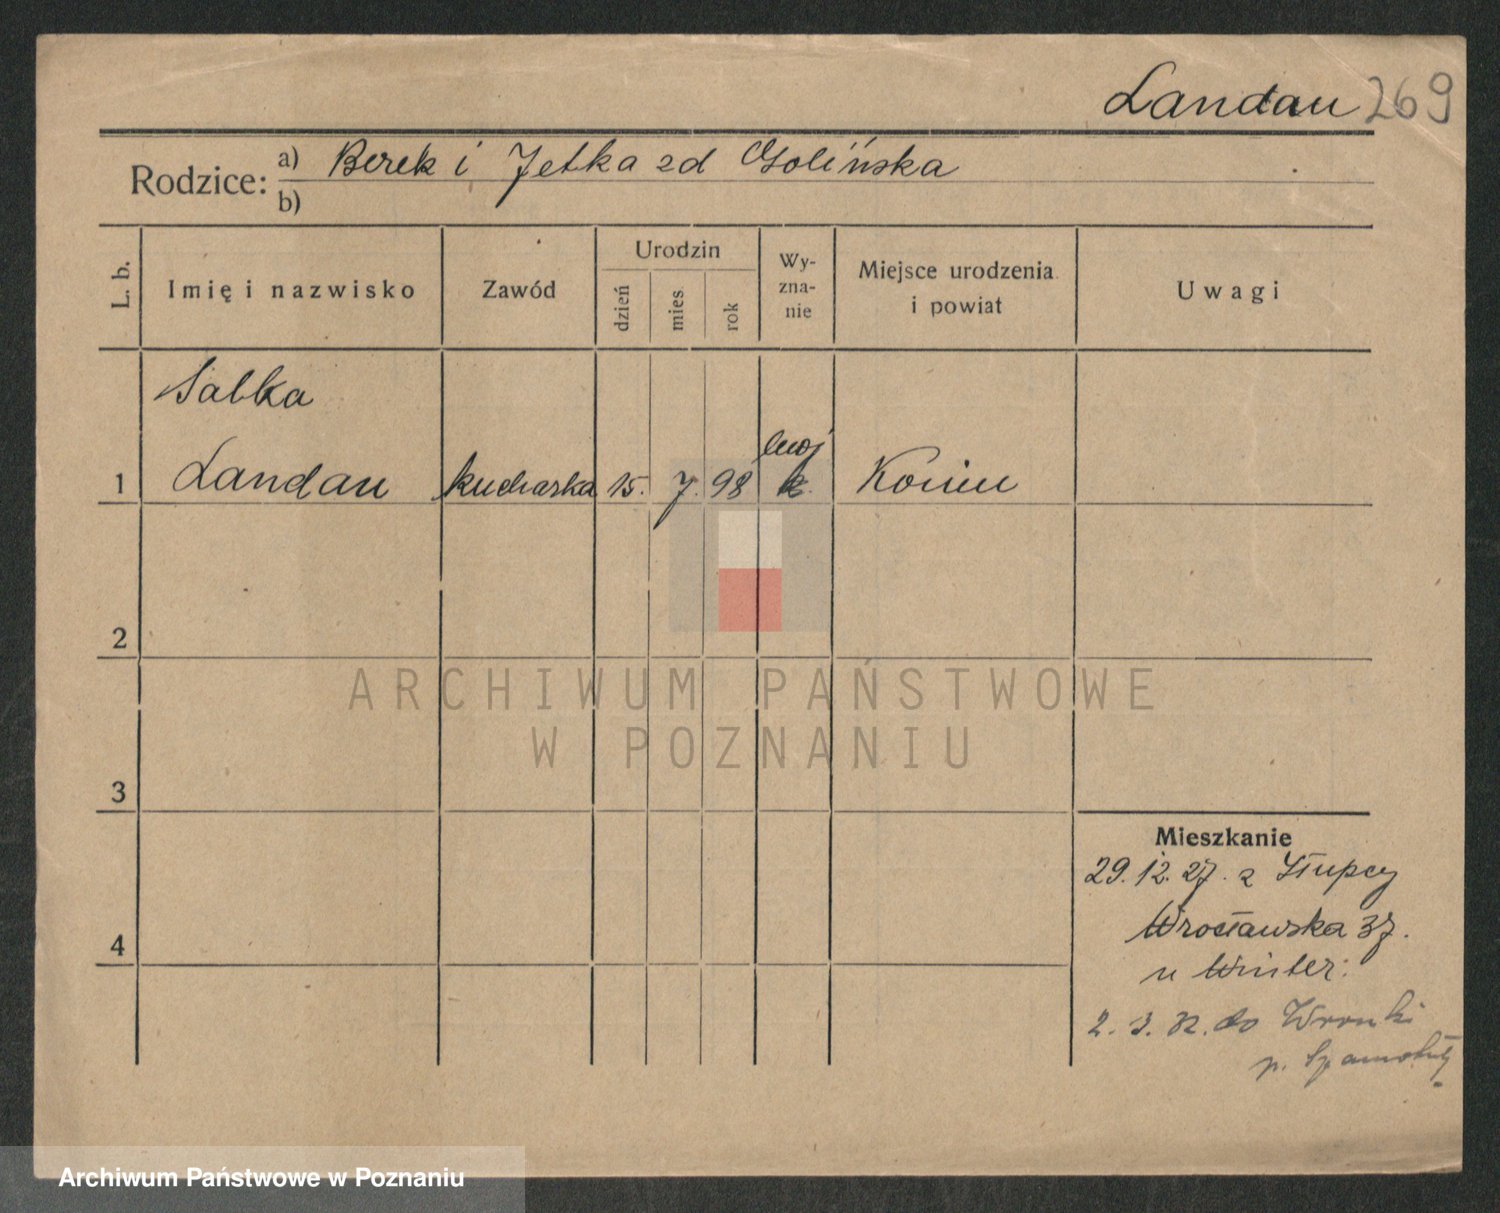 Landau 269
Rodzice: a) Berek i Jetka zd Golińska
b)
L. b.
Imię i nazwisko
Zawód
Urodzin
dzień
mies.
rok
Wy-
zna-
nie
Miejsce urodzenia
i powiat
Uwagi
Salka
1 Landau kucharka 15. 7. 98 Konin
2
3
4
Mieszkanie
29.12.27. z Słupcy
Wrocławska 37.
u Winter.
2. 3. 32. do Wronki
p. Szamotuły
ARCHIWUM PAŃSTWOWE
W POZNANIU
Archiwum Państwowe w Poznaniu